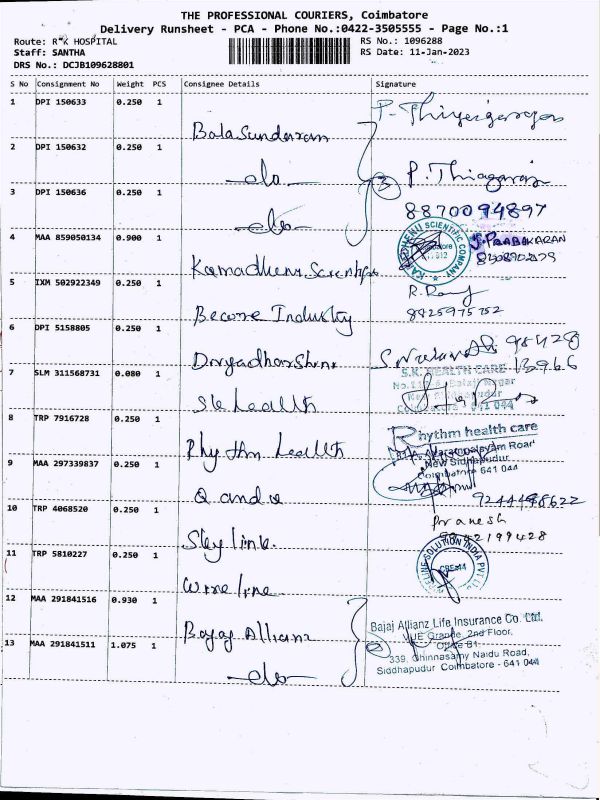 THE PROFESSIONAL COURIERS, Coimbatore
Delivery Runsheet - PCA - Phone No.:0422-3505555 - Page No.:1
Route: R K HOSPITAL
RS No.: 1096288
Staff: SANTHA
RS Date: 11-Jan-2023
DRS No.: DCJB109628801
S No Consignment No Weight PCS Consignee Details Signature
1 DPI 150633 0.250 1
BalaSundaram
2 DPI 150632 0.250 1
-do-
3 P. Thiagarajan
3 DPI 150636 0.250 1
-do-
8870094897
4 MAA 859050134 0.900 1
Kamadhenu Scientific
KAMADHENU SCIENTIFIC COMPANY
S. PRABAKARAN
5 IXM 502922349 0.250 1
Become Industry
8825975752
6 DPI 5158805 0.250 1
Divyadharshini
98428
13966
7 SLM 311568731 0.080 1
Sk health
S.K. HEALTH CARE
Coimbatore - 641 044
8 TRP 7916728 0.250 1
Rhythm health
Rhythm health care
New Sidhapudur
Coimbatore 641 044
9 MAA 297339837 0.250 1
Q and Q
9244498622
10 TRP 4068520 0.250 1
Sky link
Pranesh
11 TRP 5810227 0.250 1
Wireline
SOLUTION INDIA PVT LTD
12 MAA 291841516 0.930 1
Bajaj Allianz
Bajaj Allianz Life Insurance Co. Ltd.
VUE Grande, 2nd Floor,
Office B1
13 MAA 291841511 1.075 1
-do-
2
339, Chinnasamy Naidu Road,
Siddhapudur Coimbatore - 641 044